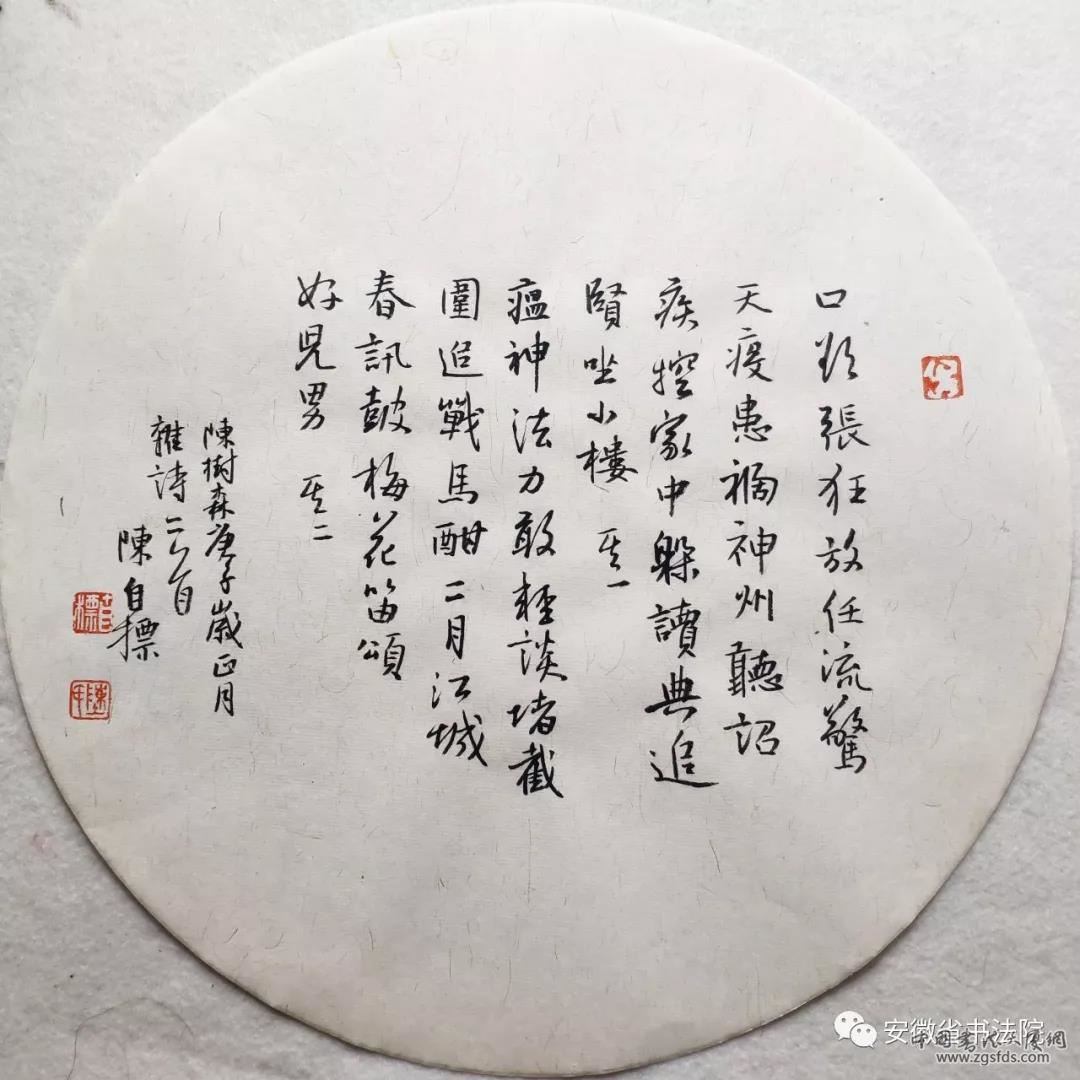 口欲張狂放任流驚
天疫患禍神州聽詔
疾控家中躲讀典追
賢坐小樓 其一
瘟神法力敢輕談堵截
圍追戰馬酣二月江城
春訊鼓梅花笛頌
好兒男 其二
陳樹森庚子歲正月
雜詩二首
陳自標
安徽省书法院
www.zgsfds.com